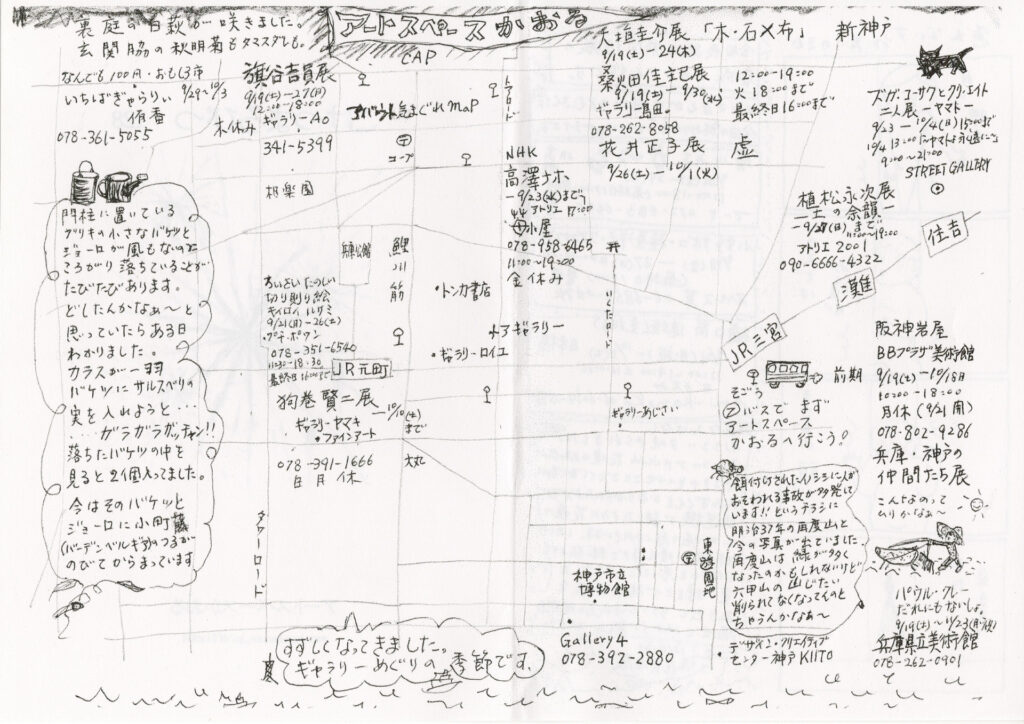 裏庭の白萩が咲きました。
玄関脇の秋明菊もタマスダレも。
なんでも100円・おもしろ市
いちばぎゃらりぃ 9/29〜10/3
侑香
078-361-5055
アートスペースかおる
CAP
旗谷吉員展
9/19(土)ー27(日)
12:00ー18:00
木休み ギャラリーAO
341-5399
アバウト気まぐれmap
トアロード
コープ
大垣圭介展 「木・石×布」
9/19(土)ー24(木)
桑畑佳主巳展
9/19(土)ー9/30(水)
ギャラリー島田
078-262-8058
12:00ー19:00
火18:00まで
最終日16:00まで
花井正子展 虚
9/26(土)ー10/1(火)
新神戸
ズガ・コーサクとクリ・エイト
二人展ーヤマトー
9/23ー10/4(日)
9:00〜21:00
STREET GALLERY
NHK
高澤ナホ
ー9/23(水)まで
44アトリエ 17:00
小屋
078-958-6465
11:00〜19:00
金休み
植松永次展
ー土の余韻ー
ー9/27(日)まで
11:00〜19:00
アトリエ2001
090-6666-4322
住吉
灘
JR三宮
相楽園
門柱に置いている
ブリキの小さなバケツと
ジョーロが風もないのに
ころがり落ちていることが
たびたびあります。
どしたんかなぁ〜と
思っていたらある日
わかりました。
カラスが一羽
バケツにサルスベリの
実を入れようと…
…ガラガラガッチャン!!
落ちたバケツの中を
見ると2個入ってました。
今はそのバケツと
ジョーロに小町藤
(ハーデンベルギア)のつるが
のびてからまっています
鯉川筋
ちいさいたのしい
切り彫り絵
キイロイトリサミ
9/21(月)ー26(土)
プチ・ポワン
078-351-6540
11:30ー18:30
最終日16:00まで
JR元町
・トンカ書店
トアギャラリー
・ギャラリーロイユ
いくたロード
狗巻賢二展
ー10/10(土)まで
ギャラリーヤマキ
・ファインアート
078-391-1666
日月休
大丸
タワーロード
ギャラリーあじさい
そごう
②バスで まず
アートスペース
かおるへ行こう!
前期
阪神岩屋
BBプラザ美術館
9/19(土)ー10/18日
10:00ー18:00
月休(9/21開)
078-802-9286
兵庫・神戸の
仲間たち展
こんなのって
ムリかなぁ〜
餌付けされたイノシシに人が
おそわれる事故が多発して
います!!というチラシに
明治37年の再度山と
今の写真が出ていました。
再度山は緑が多く
なったのかもしれないけど
六甲山の山じたい
削られてなくなってくのと
ちゃうんかなぁ〜
東遊園地
神戸市立
博物館
デザイン・クリエイティブ
センター神戸KIITO
パウル・クレー
だれにもないしょ。
9/19(土)〜11/23(月・祝)
兵庫県立美術館
078-262-0901
Gallery4
078-392-2880
すずしくなってきました。
ギャラリーめぐりの季節です。